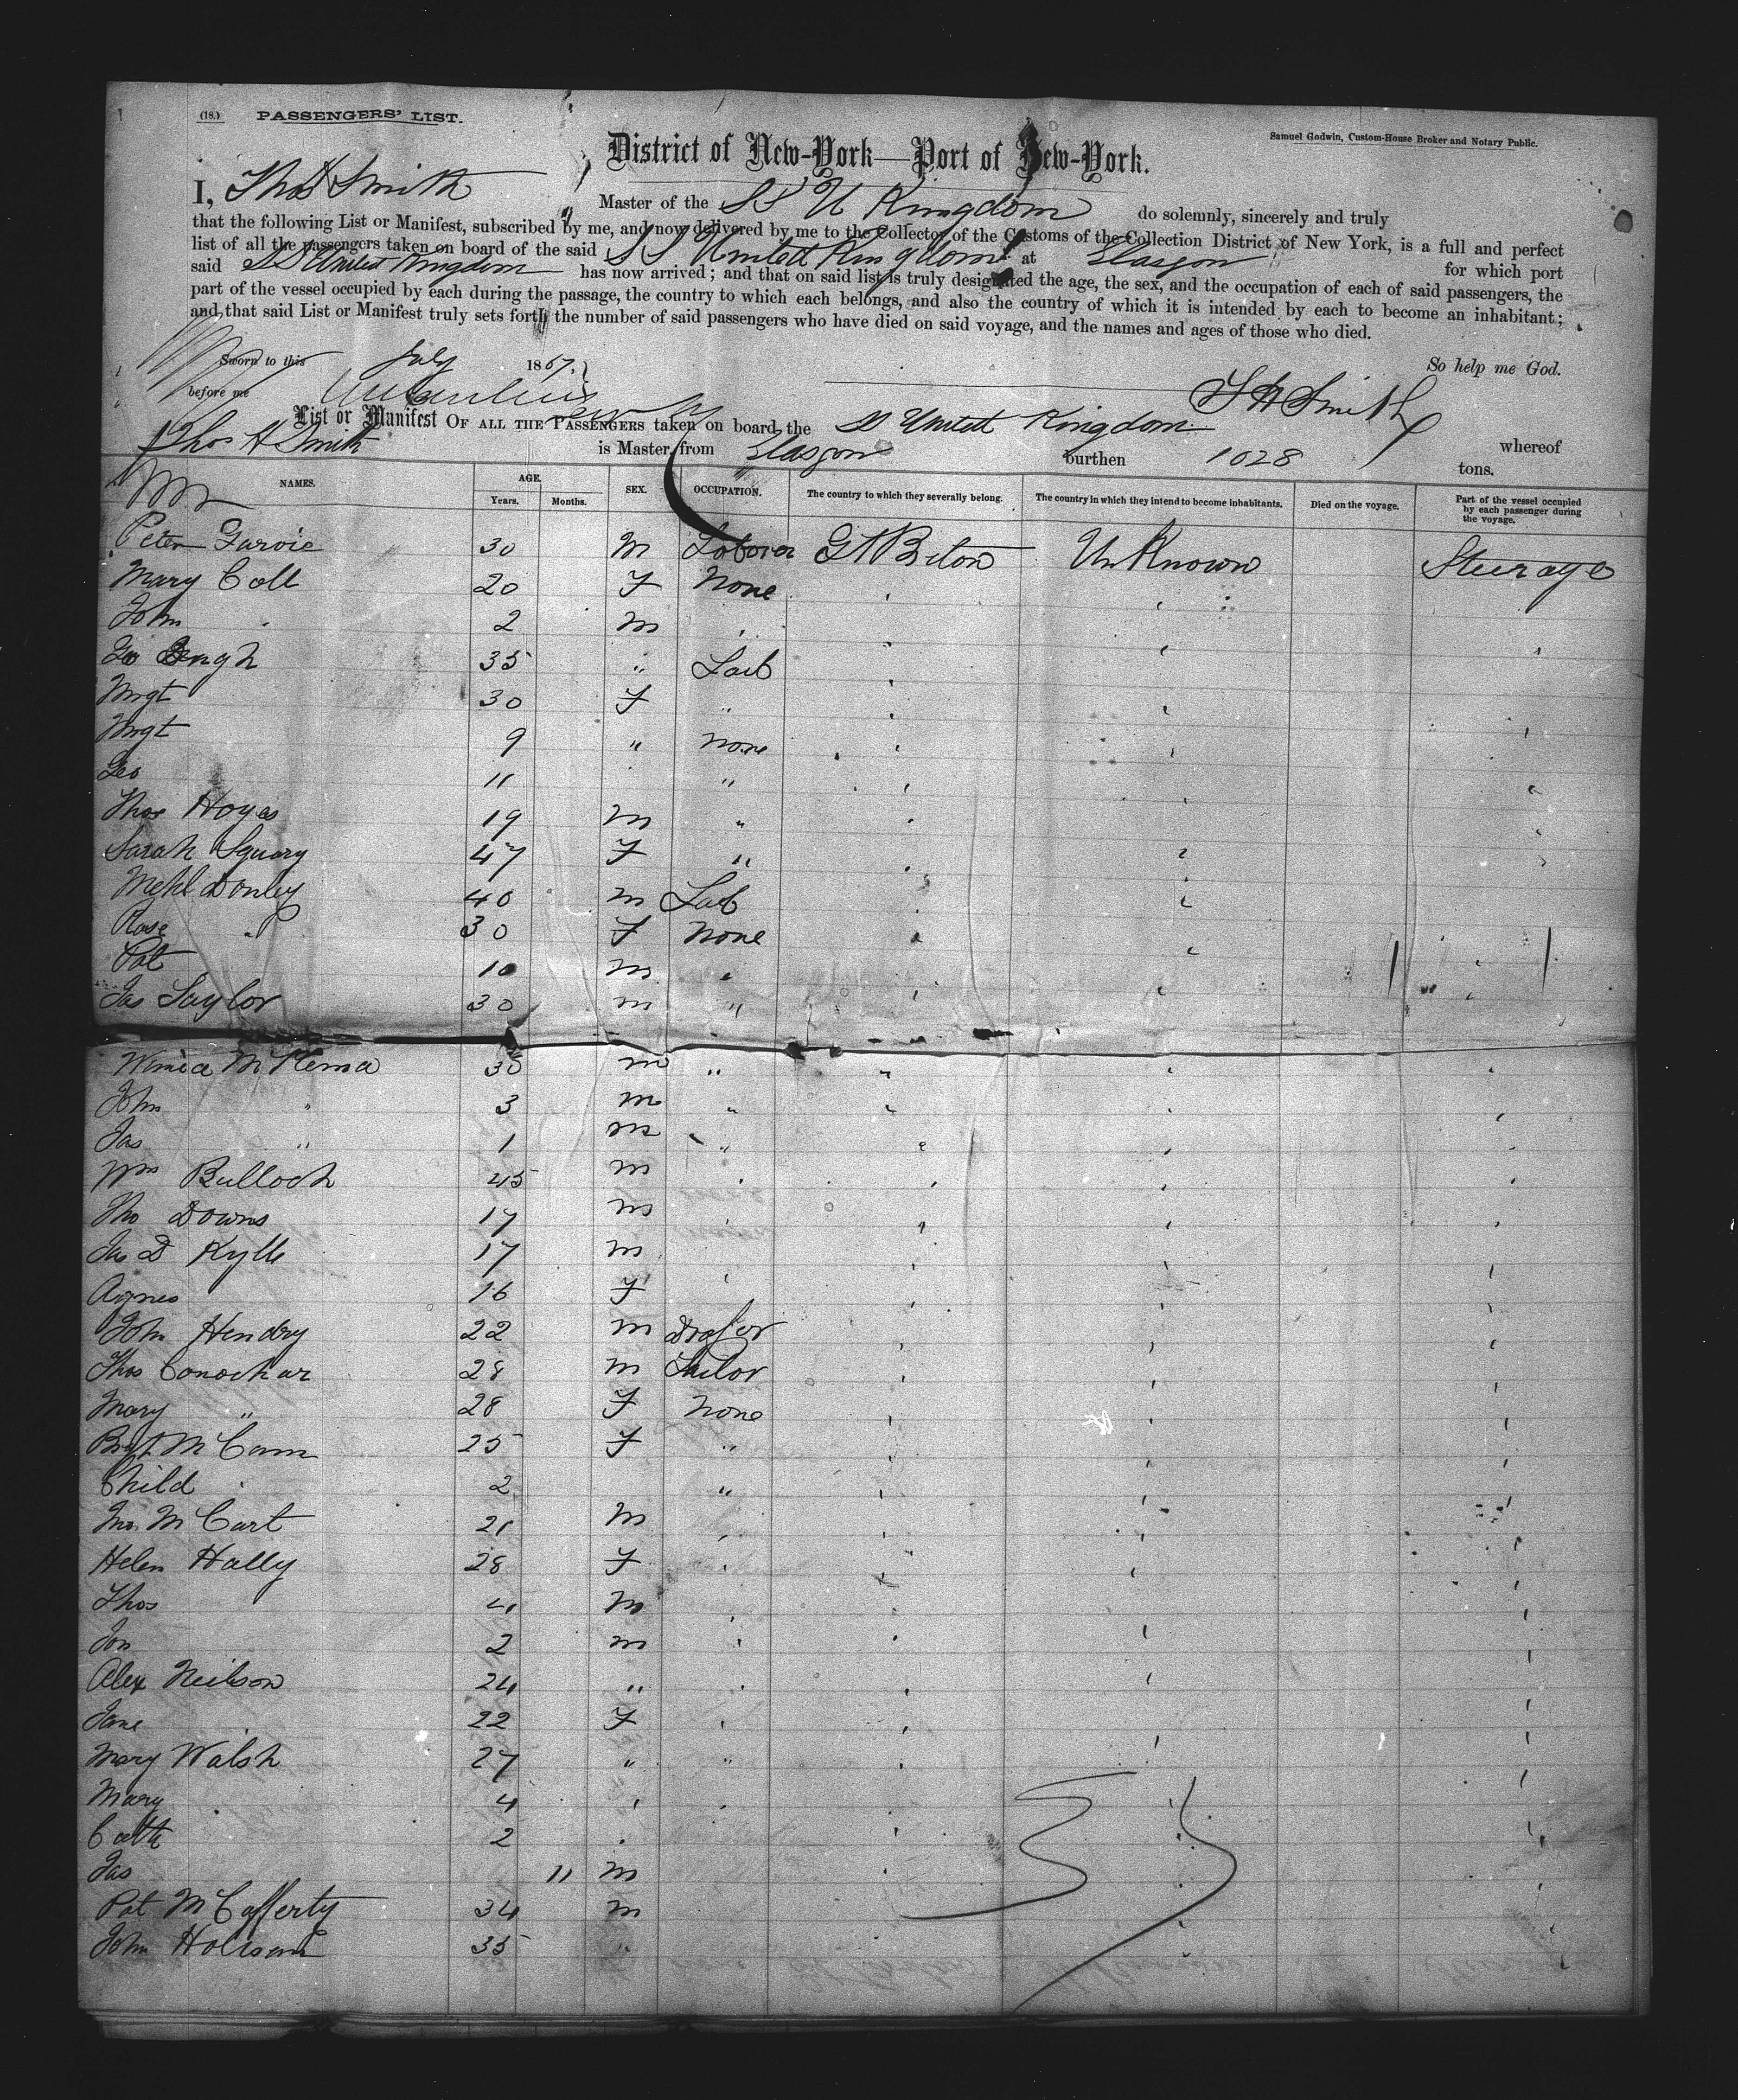 (18.) PASSENGERS' LIST.
Samuel Godwin, Custom-House Broker and Notary Public.
District of New-York—Port of New-York.
I, Thos H Smith Master of the SS U Kingdom do solemnly, sincerely and truly
that the following List or Manifest, subscribed by me, and now delivered by me to the Collector of the Customs of the Collection District of New York, is a full and perfect
list of all the passengers taken on board of the said SS United Kingdom at Glasgow for which port
said SS United Kingdom has now arrived; and that on said list is truly designated the age, the sex, and the occupation of each of said passengers, the
part of the vessel occupied by each during the passage, the country to which each belongs, and also the country of which it is intended by each to become an inhabitant;
and that said List or Manifest truly sets forth the number of said passengers who have died on said voyage, and the names and ages of those who died.
Sworn to this July 1867. So help me God.
before me T H Smith
List or Manifest OF ALL THE PASSENGERS taken on board the SS United Kingdom whereof
Thos H Smith is Master, from Glasgow burthen 1028 tons.
NAMES. AGE. Years. Months. SEX. OCCUPATION. The country to which they severally belong. The country in which they intend to become inhabitants. Died on the voyage. Part of the vessel occupied by each passenger during the voyage.
Peter Garvie 30 M Laborer Gt Briton UnKnown Steerage
Mary Coll 20 F None
John " 2 M
35 " Lab
Mrgt 30 F "
Mrgt 9 " None
Geo 11 "
Thos Hoyes 19 M "
Sarah 47 F "
Mchl Donley 40 M Lab
Rose " 30 F None
Pat 10 M "
Jas Taylor 30 M "
30 M "
John " 3 M "
Jas " 1 M "
Wm Bulloch 45 M
Tho Downs 17 M
Jas D Kylle 17 M
Agnes 16 F
John Hendry 22 M Draper
Thos Conochar 28 M Tailor
Mary " 28 F None
Brgt McCann 25 F "
Child 2 "
Jno. McCart 21 M
Helen Hally 28 F
Thos 4 M
Jon 2 M
Alex Neilson 24 "
Jane 22 F
Mary Walsh 27 " "
Mary 4
Cath 2
Jas 11 M
Pat McCafferty 34 M
John 35 "